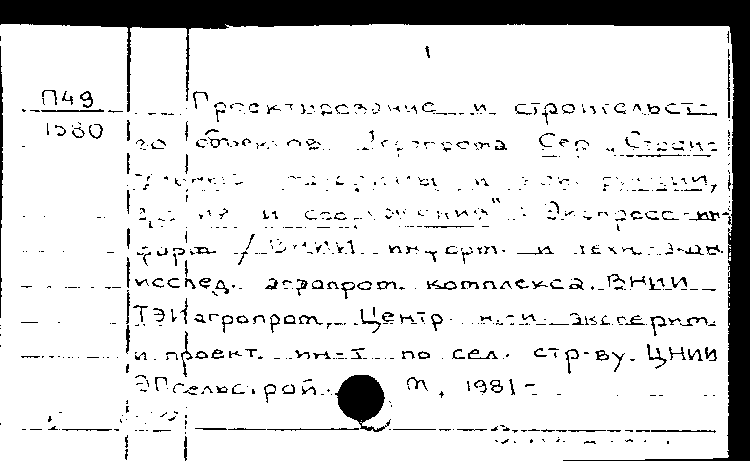 1
П49
1580
Проектирование и строительст-
во объектов Агропрома Сер „Строи-
материалы и
и сооружения" : Экспресс-ин-
форм / ВНИИ информ. и техн.-экон.
исслед. агропром. комплекса. ВНИИ
ТЭИагропром, Центр н.-и. эксперим.
и проект. ин-т по сел. стр-ву. ЦНИИ
ЭПсельстрой. М, 1981-